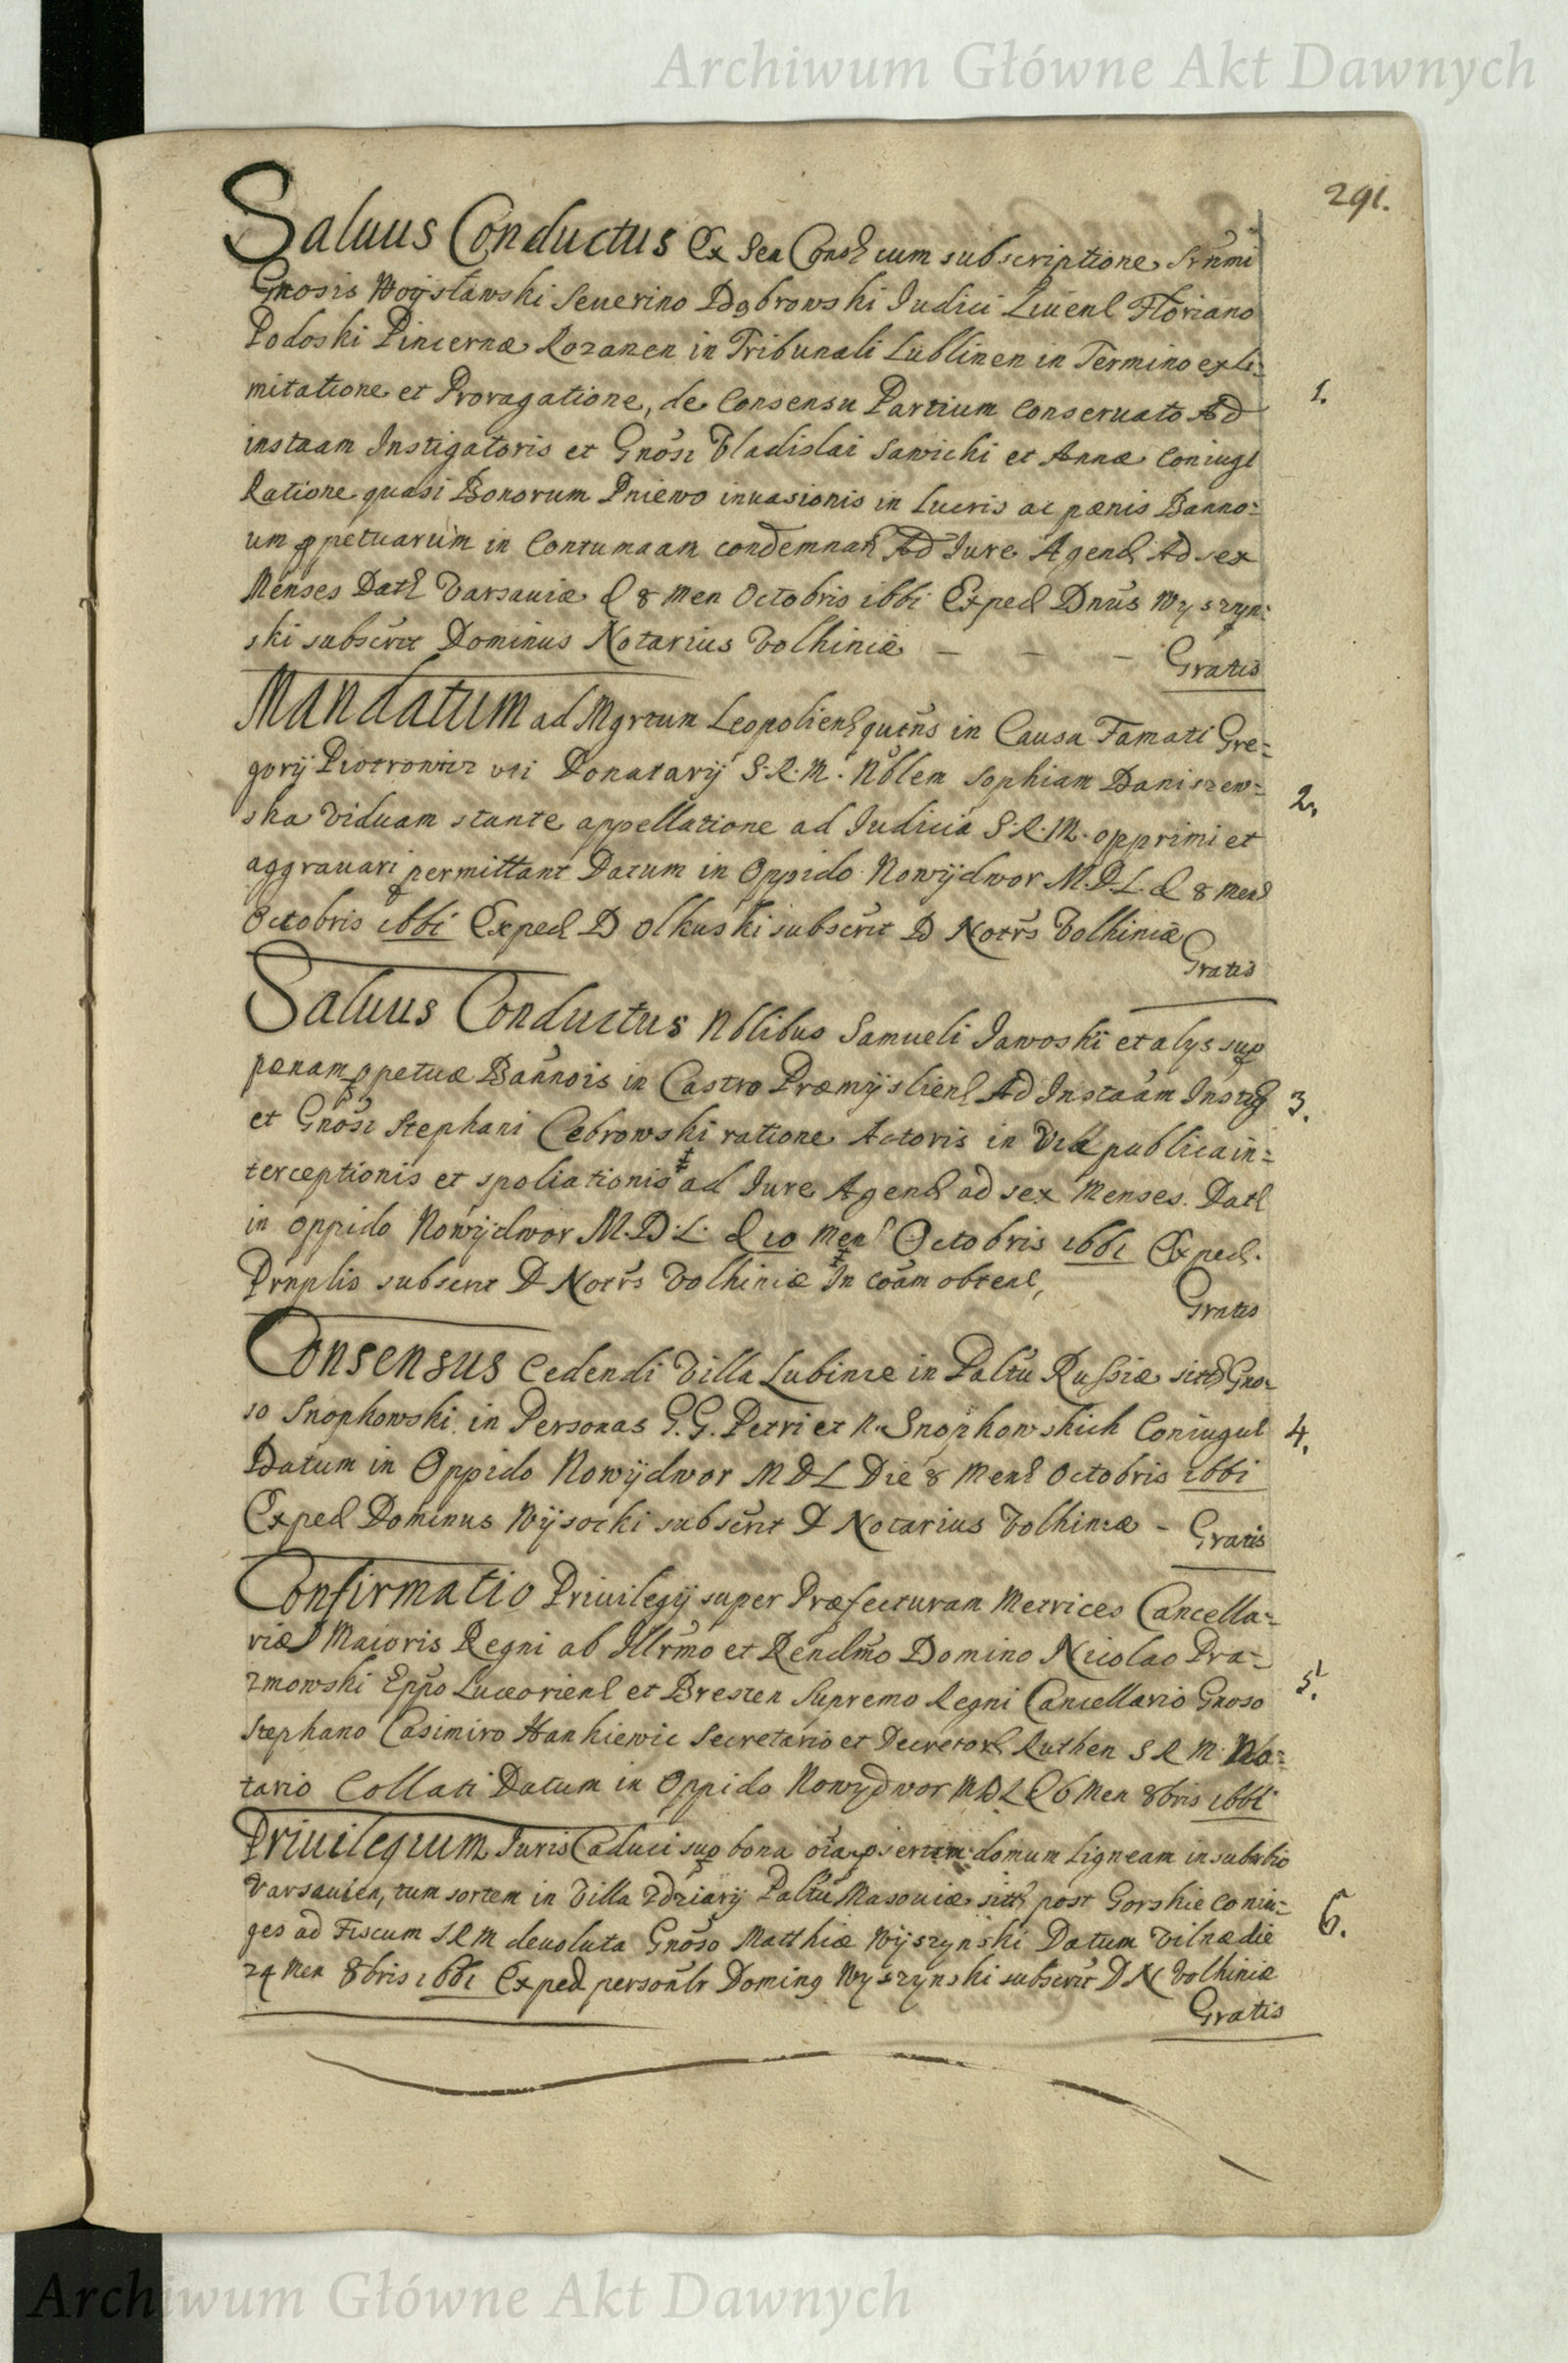 Archiwum Główne Akt Dawnych
291.
Saluus Conductus Ex Sen Consl cum subscriptione Srnmi
Gnosis Woysławski Seuerino Dąbrowski Iudici Liuenl Floriano
Podoski Pincernæ Rozanen in Tribunali Lublinen in Termino exli-
mitatione et Prorogatione, de Consensu Partium conseruato Ad 1.
instaam Instigatoris et Gnosi Vladislai Sawicki et Annæ Coniugl
Ratione quasi Bonorum Pniewo inuasionis in Lucris ac pænis Banno=
um ppetuarum in Contumaam condemnatl Ad Iure Agendl Ad sex
Menses Datl Varsauiæ d 8 Men Octobris 1661 Exped Dnus Wyszyn:
ski subscrit Dominus Notarius Volhiniæ – – – Gratis
Mandatum ad Mgrtum Leopolienl qutns in Causa Famati Gre=
gorij Piotrowicz uti Donatarij S.R.M. Nblem Sophiam Daniszew=
ska Viduam stante appellatione ad Iudicia S.R.M. opprimi et 2.
aggrauari permittant Datum in Oppido Nowijdwor M.D.L. d 8 Menl
Octobris 1661 Exped D Olkuski subscrit D Notrs Volhiniæ
Gratis
Saluus Conductus Nblibus Samueli Jawoski et alys sup
pænam ppetuæ Bannois in Castro Præmijslienl Ad Instaam Instig 3.
et Gnosi Stephani Cebrowski ratione Actoris in Via publica in=
terceptionis et spoliationis ‡ ad Iure Agendl ad sex Menses. Datl
in Oppido Nowijdwor M.D.L. d 10 Menl Octobris 1661 Exped.
Prnplis subscrit D Notrs Volhiniæ ‡ In Coam obtenl,
Gratis
Consensus Cedendi Villa Lubinze in Paltu Russiæ sittl Gno=
so Snopkowski in Personas G.G. Petri et N. Snopkowskich Coniugul 4.
Datum in Oppido Nowijdwor M D L Die 8 Menl Octobris 1661
Exped Dominus Wijsocki subscrit D Notarius Volhiniæ – Gratis
Confirmatio Priuilegij super Præfecturam Metrices Cancella=
riæ Maioris Regni ab Illrmo et Rendmo Domino Nicolao Pra=
zmowski Eppo Luceorienl et Bresten Supremo Regni Cancellario Gnoso 5.
Stephano Casimiro Hankiewic Secretario et Decretorl Ruthen S R M No=
tario Collati Datum in Oppido Nowydwor M D L d 6 Men 8bris 1661
Priuilegium Iuris Caduci sup bona oia psertim domum ligneam in suburbio
Varsauien, tum sortem in Villa Zdziarij Paltu Masouiæ sittl post Gorskie Coniu=
ges ad Fiscum S R M deuoluta Gnoso Matthiæ Wijszynski Datum Vilnæ die 6.
24 Men 8bris 1661 Exped personlr Doming Wyszynski subscrit D N Volhiniæ
Gratis
Archiwum Główne Akt Dawnych